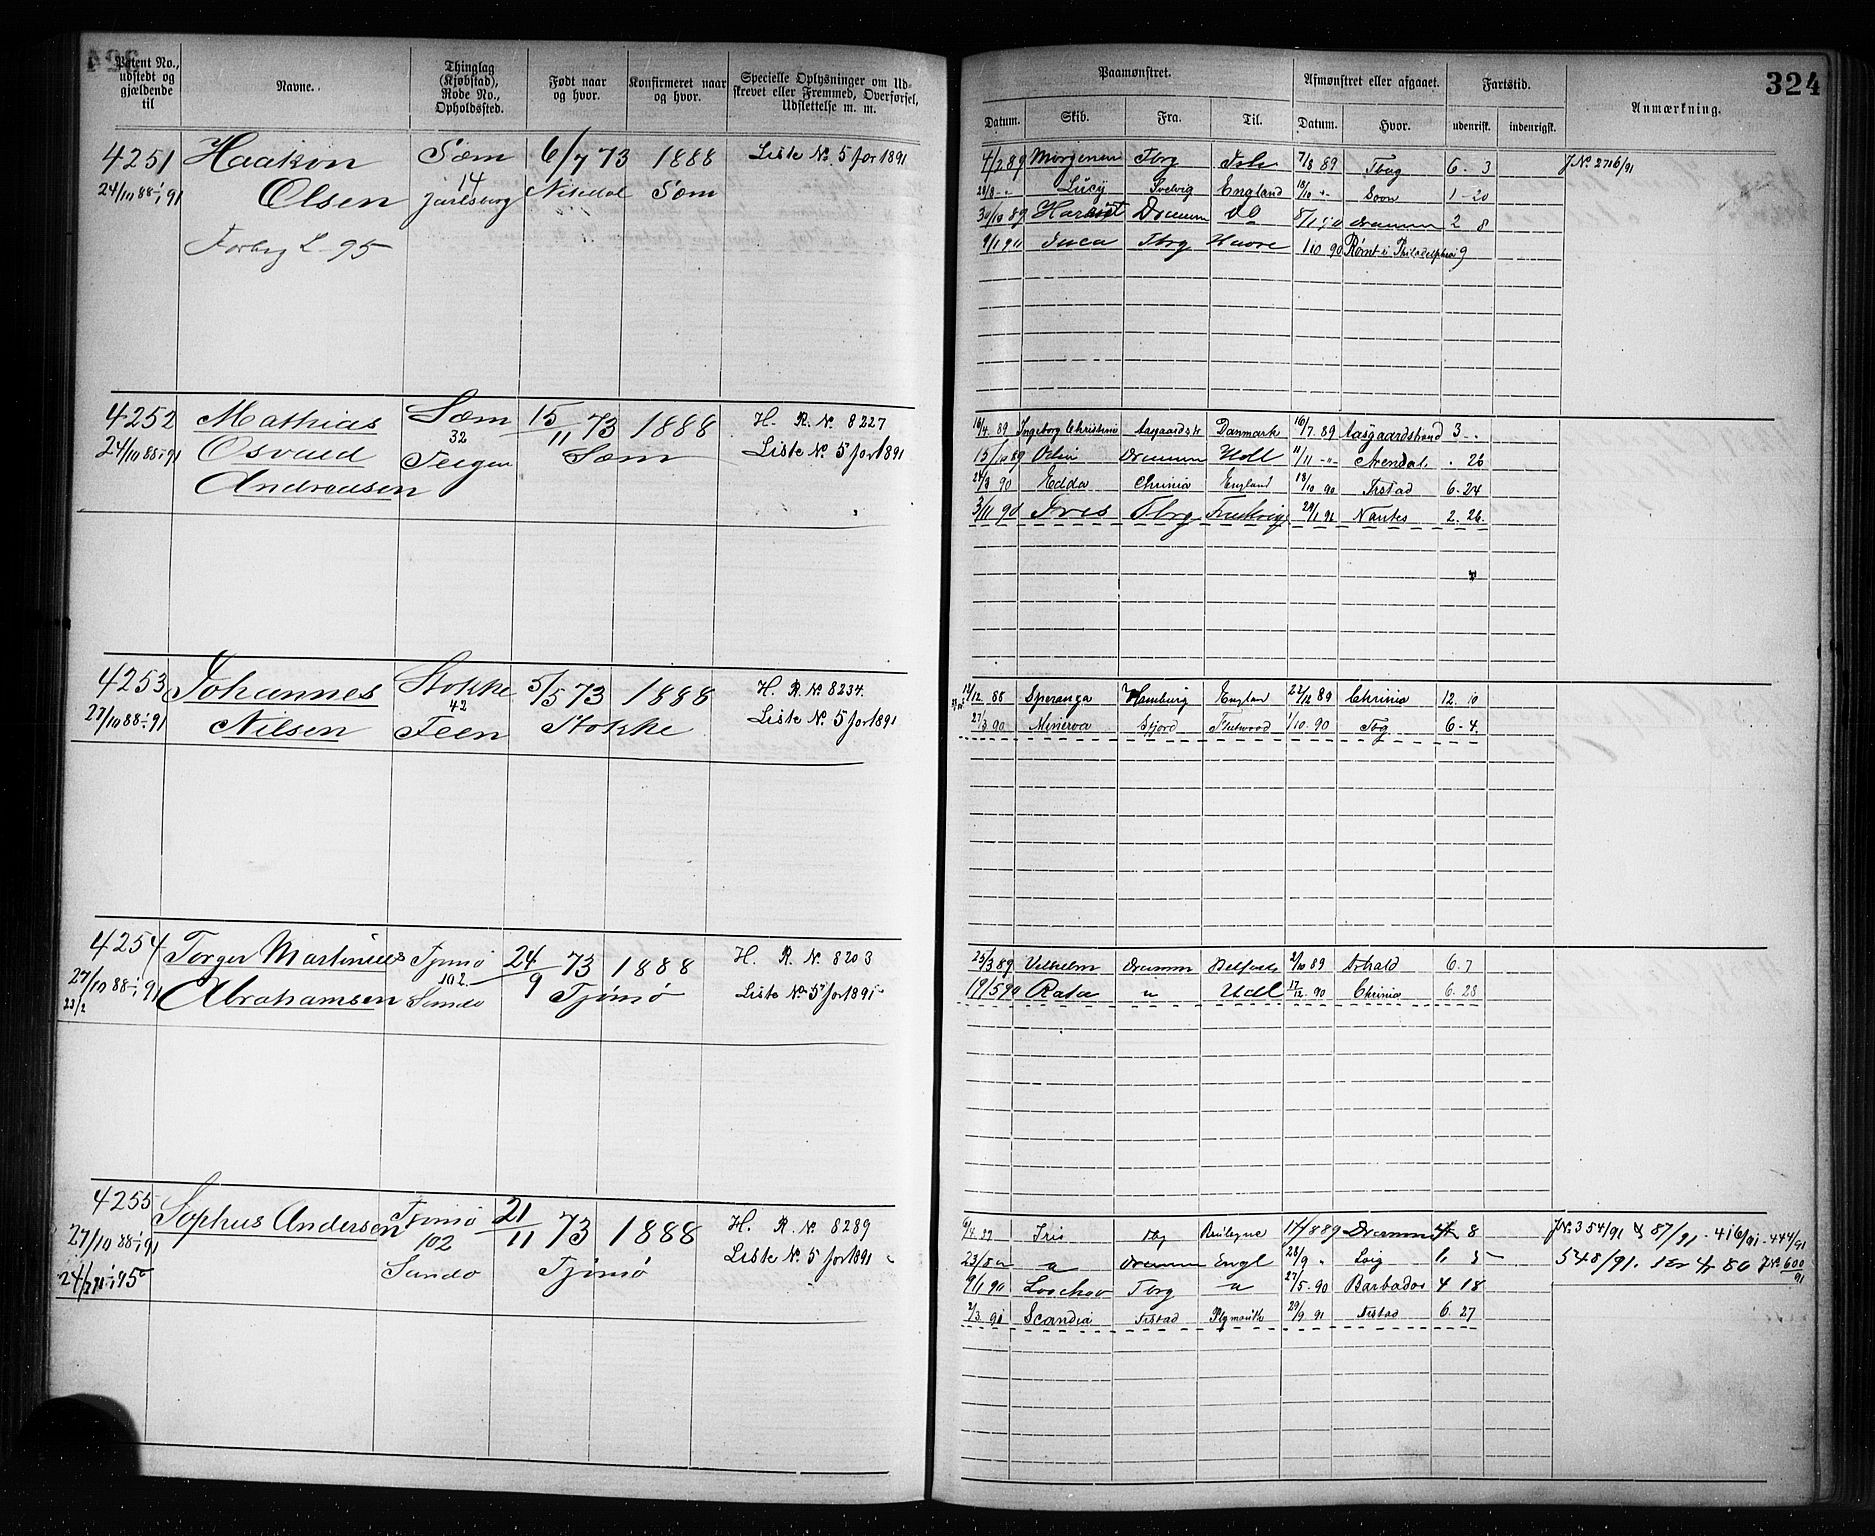 324
Patent No., udstedt og gjældende til
Navne.
Thinglag (Kjøbstad), Rode No., Opholdssted.
Født naar og hvor.
Konfirmeret naar og hvor.
Specielle Oplysninger om Udskrevet eller Fremmed, Overførsel, Udslettelse m. m.
Paamønstret.
Afmønstret eller afgaaet.
Fartstid.
Anmærkning.
Datum. Skib. Fra. Til. Datum. Hvor. udenrigsk. indenrigsk.
4251 Haakon Sæm 6/7 73 1888 Liste No. 5 for 1891
24/10 88-1/1 91 Olsen 14 Jarlsberg Nikedal Sæm
Forbrg L. 95
4/2 89 Tbrg 7/8 89 Tbrg 6 - 3 J.No. 2716/91
28/8 - " Lucy Svelvig England 18/10 " Soon 1 - 20
30/10 89 Harriet Drammen do 8/1 90 Drammen 2 8
9/1 90 Tbrg Havre 1/10 90 Rømt i Philadelphia 9
4252 Mathias Sæm 15/11 73 1888 H. R. No. 8227
24/10 88-1/1 91 Osvald 32 Sæm Liste No. 5 for 1891
Andreasen
16/4 89 Ingeborg Christine Aasgaardstr Danmark 16/7 89 Aasgaardstrand 3 - "
15/10 89 Drammen Holl 11/11 - " - Arendal " 26
24/3 90 Edda Chrinia England 18/10 90 Frstad 6 - 24
3/11 90 Iris Tbrg 29/1 91 Nantes 2. 26
4253 Johannes Stokke 5/5 73 1888 H. R. No. 8234
27/10 88-1/1 91 Nilsen 42 Feen Stokke Liste No. 5 for 1891
14/12 88 Speranza Hamburg England 22/12 89 Chrinia 12. 10
27/3 90 Minerva Sfjord Fleetwood 1/10. 90 Tbg 6 - 4.
4254 Torger Martinius Tjømø 24/9 73 1888 H. R. No. 8203
27/10 88-1/1 91 Abrahamsen 102 Sundø Tjømø Liste No. 5 for 1891
23/2
25/3 89 Vilhelm Dramm Belfast 2/10 89 6. 7
19/5 90 Rata " Udl 17/12 90 Chrinia 6. 28
4255 Sophus Andersen Tjømø 21/11 73 1888 H. R. No. 8289
27/10 88-1/1 91 102 Sundø Tjømø Liste No. 5 for 1891
6/4 89 Iris Tbg 17/8 89 Drammen 4 8 J.No. 354/91 & 87/91 - 416/91 - 444/91
23/8 " " Drammen Engl 28/9 " 1. 5 548/91. J.No. 600/91
9/1 90 Tbrg " 27/5 90 Barbados 4 18
2/3 91 Scandia Frstad Plymouth 29/9 91 Frstad 6. 27